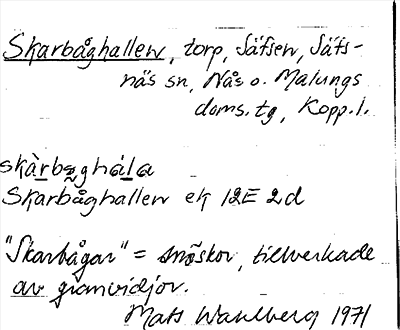 Skarbåghallen, torp, Säfsen, Säfs-
näs sn, Nås o. Malungs
doms. tg, Kopp. l.
skàrbǫghála
Skarbåghallen ek 12E 2d
"Skarbågar" = snöskor, tillverkade
av granvidjor.
Mats Wahlberg 1971